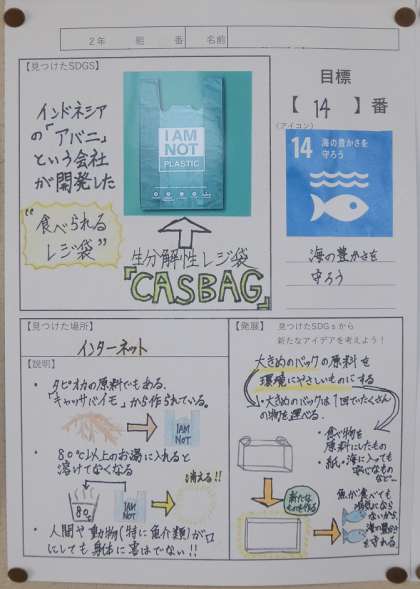 2年 組 番 名前
【見つけたSDGS】
インドネシア
の「アバニ」
という会社
が開発した
"食べられる
レジ袋"
I AM
NOT
PLASTIC
生分解性レジ袋
『CASBAG』
目標
【 14 】番
(アイコン)
14 海の豊かさを
守ろう
海の豊かさを
守ろう
【見つけた場所】
インターネット
【説明】
・タピオカの原料でもある、
「キャッサバイモ」から作られている。
I AM
NOT
・80℃以上のお湯に入れると
溶けてなくなる
消える!!
80℃
I AM
NOT
・人間や動物(特に魚介類)が口
にしても身体に害はでない!!
【発展】 見つけたSDGsから
新たなアイデアを考えよう!
大きめのパックの原料を
環境にやさしいものにする
・大きめのパックは1回でたくさん
の物を運べる。
・食べ物を
原料にしたもの
・紙・海に入っても
安心なもの
など…
新たな
ものを作る
魚が食べても
病気になら
ないから
海の豊かさ
を守れる